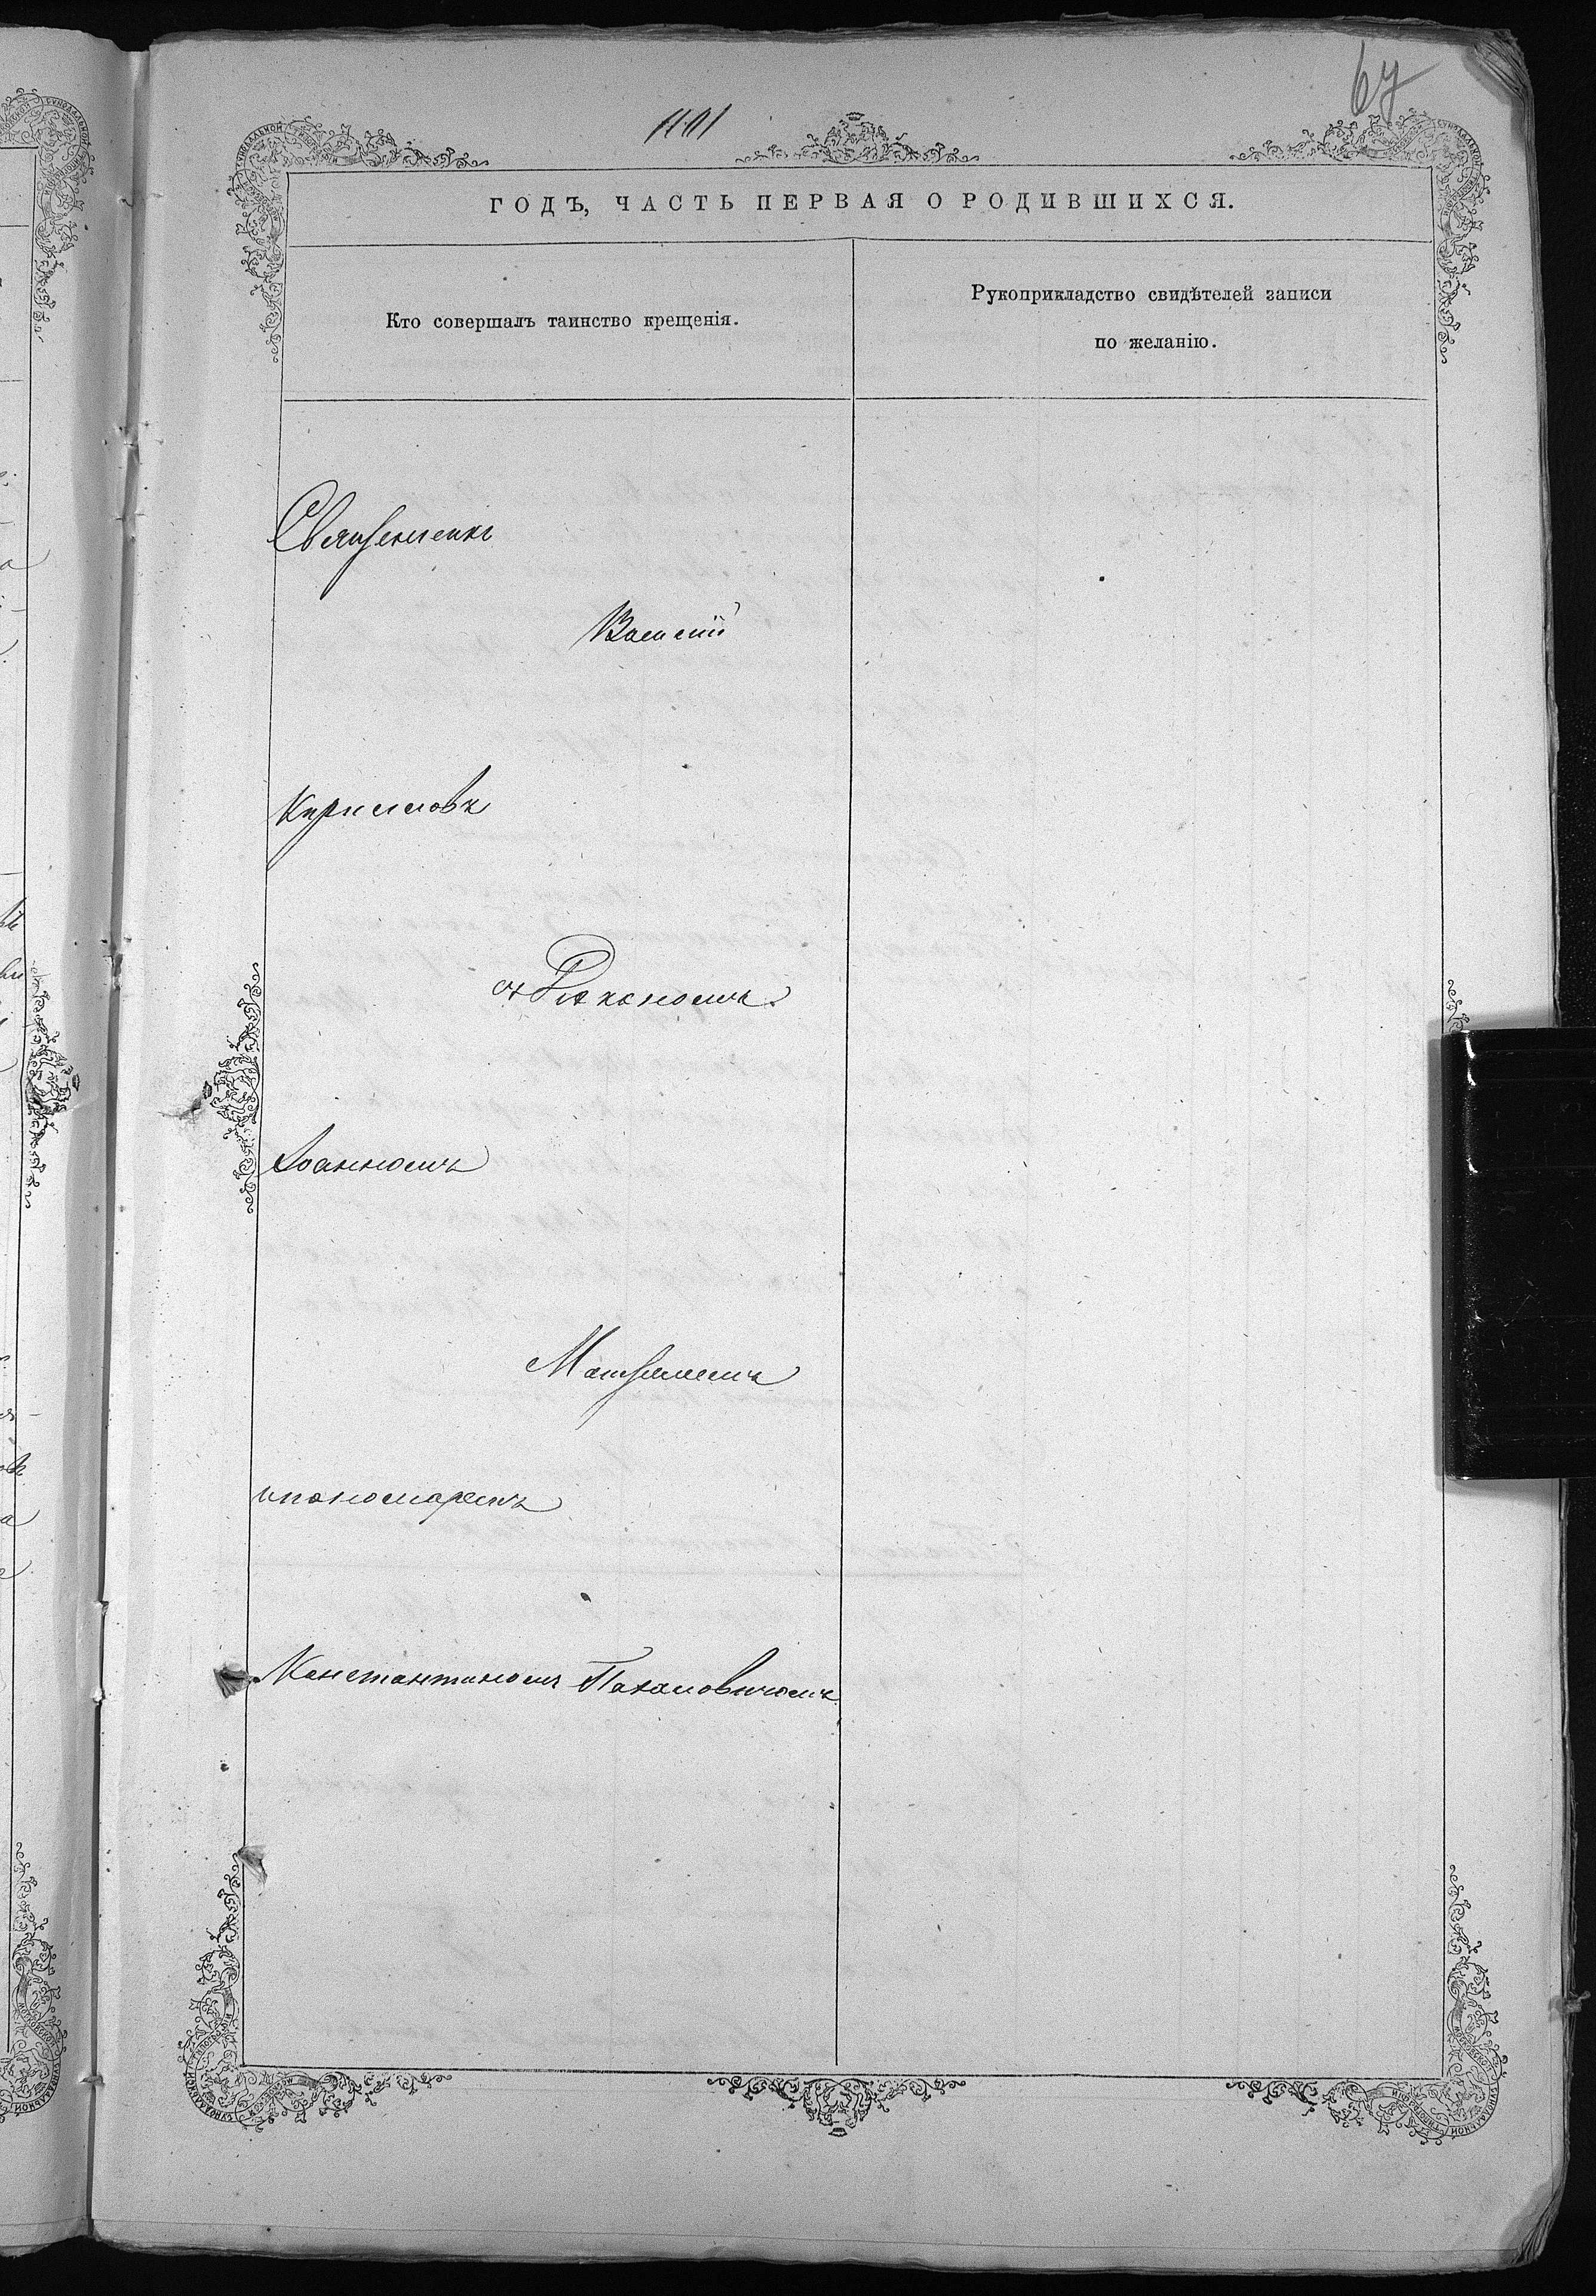 67
1101
ГОДЪ, ЧАСТЬ ПЕРВАЯ О РОДИВШИХСЯ.
Кто совершалъ таинство крещенія.
Рукоприкладство свидѣтелей записи
по желанію.
Священникъ
Василій
Кириловъ
съ Діакономъ
Іоанномъ
и пономаремъ
Константиномъ Пахамовичемъ